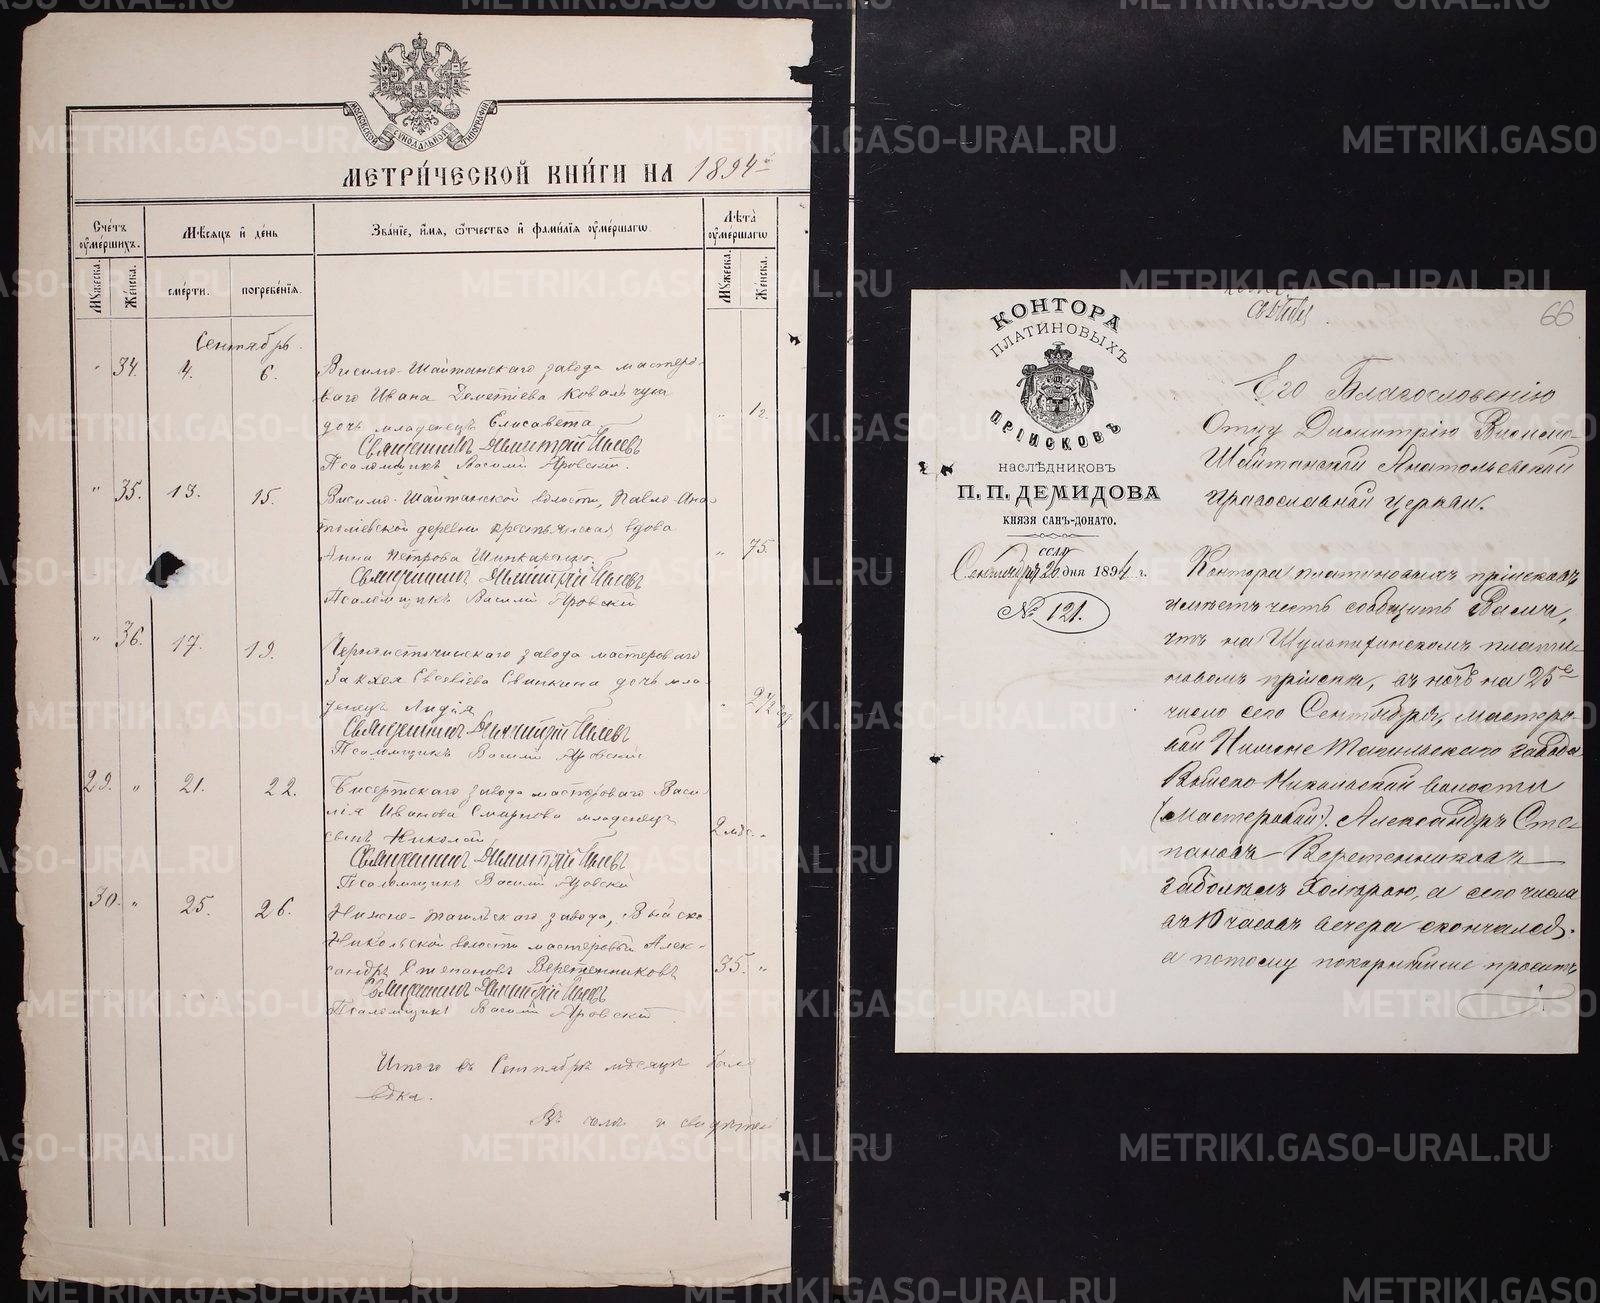 МОСКОВСКОЙ СѴНОДАЛЬНОЙ ТИПОГРАФІИ
МЕТРИ́ЧЕСКОЙ КНИ́ГИ НА 1894 й
Сче́тъ оу҆ме́ршихъ.
Мѣ́сяцъ и҆ де́нь
Зва́ніе, и҆́мя, ѻ҆́тчество и҆ фами́лія оу҆ме́ршагѡ
Лѣ́та оу҆ме́ршагѡ
Мꙋ́жеска.
Же́нска.
сме́рти.
погребе́нія.
Мꙋ́жеска.
Же́нска.
Сентябрь.
" 34. 4. 6. Висимо-Шайтанскаго завода мастеро-
ваго Ивана Деметіева Ковальчука
дочь младенецъ Елисавета " 1 г.
Священникъ Димитрій
Псаломщикъ Василій Яровскій.
" 35. 13. 15. Висимо-Шайтанской волости, Павло-Ана-
толіевской деревни крестьянская вдова
Анна Петрова Шинкаренко " 75.
Священникъ Димитрій
Псаломщикъ Василій Яровскій
" 36. 17. 19. Черноисточинскаго завода мастероваго
Закхея Евсевіева Свинкина дочь мла-
денецъ Лидія " 2 1/2
Священникъ Димитрій
Псаломщикъ Василій Яровскій
29. " 21. 22. Бисертскаго завода мастероваго Васи-
лія Иванова Смирнова младенецъ
сынъ Николай 2 мѣс. "
Священникъ Димитрій
Псаломщикъ Василій Яровскій
30. " 25. 26. Нижне-Тагильскаго завода, Выйско-
Никольской волости мастеровый Алек-
сандръ Степановъ Веретенниковъ 35. "
Священникъ Димитрій
Псаломщикъ Василій Яровскій
Итого въ Сентябрѣ мѣсяцѣ
66
КОНТОРА
ПЛАТИНОВЫХЪ
ПРІИСКОВЪ
НАСЛѢДНИКОВЪ
П. П. ДЕМИДОВА
КНЯЗЯ САНЪ-ДОНАТО.
Сентября 26 дня 1894 г.
№ 121.
Его Благословенію
Отцу Димитрію Висимо-
Шайтанской Анатольевской
православной церкви.
Контора платиновыхъ пріисковъ
имѣетъ честь сообщить Вамъ,
что на платин-
новомъ пріискѣ, въ ночь на 25е
число сего Сентября, мастеро-
вой Нижне Тагильскаго завода
Выйско Никольской волости
(мастеровой). Александръ Сте-
пановъ Веретенниковъ
заболѣлъ холерою, а сего числа
въ 10 часовъ вечера скончался.
а потому покорнѣйше проситъ
METRIKI.GASO-URAL.RU